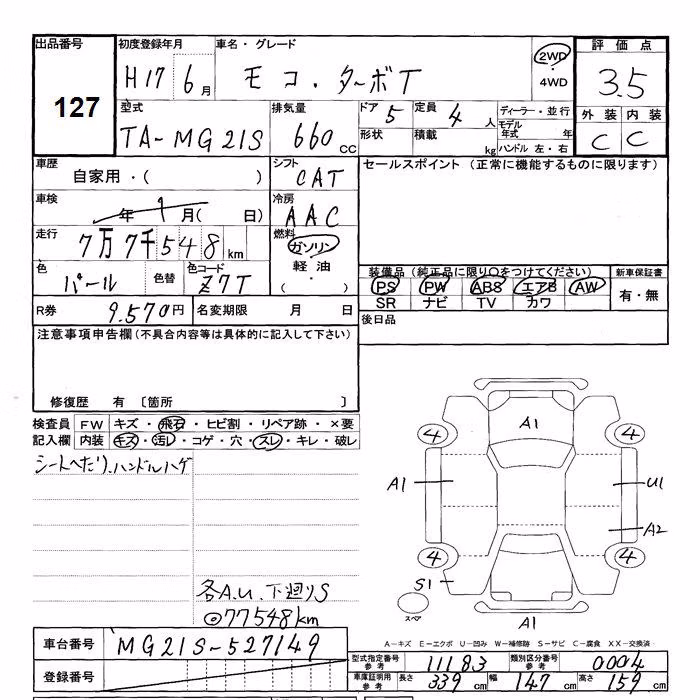 出品番号
127
初度登録年月
H17 6月
車名・グレード
モコ・ターボT
2WD
・
4WD
評価点
3.5
外装 内装
C C
型式
TA-MG21S
排気量
660 CC
ドア 5
定員 4 人
形状
積載 kg
ディーラー・並行
モデル
年式 年
ハンドル 左・右
車歴
自家用・( )
シフト
CAT
車検
年 月( 日)
冷房
AAC
走行
7万7千548km
燃料
ガソリン
軽油
( ・ )
色
パール
色替
色コード
Z7T
R券 9.570円
名変期限 月 日
セールスポイント(正常に機能するものに限ります)
装備品(純正品に限り○をつけてください)
PS PW ABS エアB AW
SR ナビ TV カワ
新車保証書
有・無
後日品
注意事項申告欄(不具合内容等は具体的に記入して下さい)
修復歴 有 〔箇所 〕
検査員 FW キズ・飛石・ヒビ割・リペア跡・×要
記入欄 内装 キズ・汚レ・コゲ・穴・スレ・キレ・破レ
シートへたり.ハンドルハゲ
各A.U.下廻りS
◎77548km
A1
4 4
A1 U1
A2
4 4
S1
スペア
A1
A-キズ E-エクボ U-凹み W-補修跡 S-サビ C-腐食 XX-交換済
車台番号 MG21S-527149
登録番号
型式指定番号 参考 11183 類別区分番号 参考 0004
車庫証明用 参考 長さ 339cm 幅 147cm 高さ 159cm